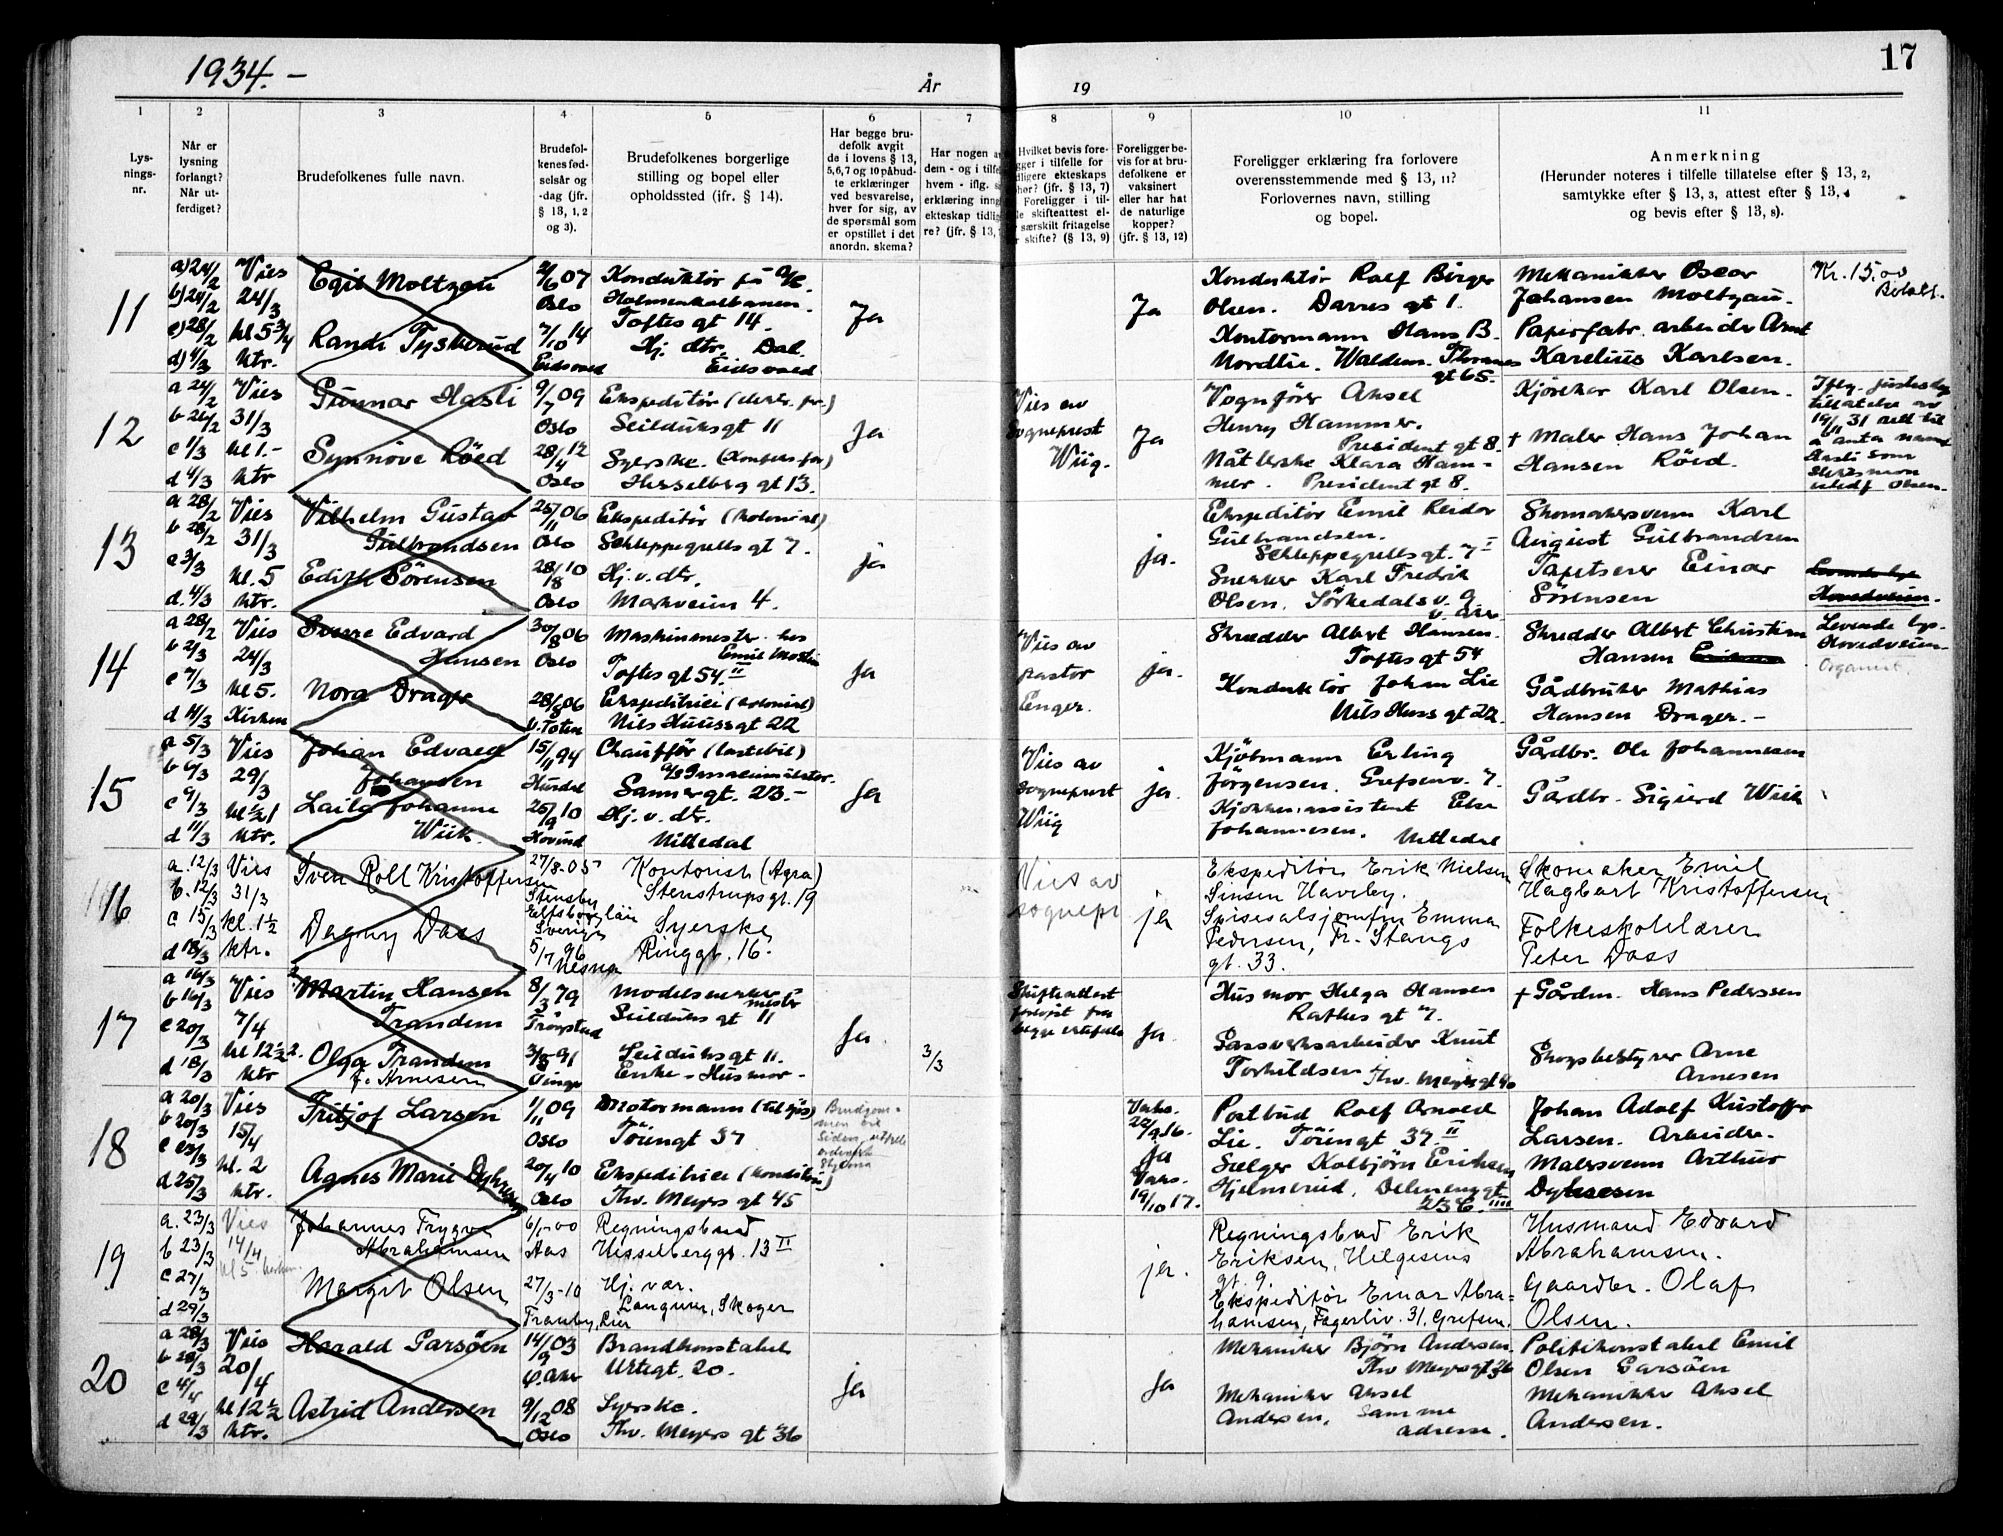 1934.–
År
19
17
1
2
3
4
5
6
7
8
9
10
11
Lys-
nings-
nr.
Når er
lysning
forlangt?
Når ut-
ferdiget?
Brudefolkenes fulle navn.
Brudefol-
kenes fød-
selsår og
-dag (jfr.
§ 13, 1, 2
og 3).
Brudefolkenes borgerlige
stilling og bopel eller
opholdssted (ifr. § 14).
Har begge bru-
defolk avgit
de i lovens § 13,
5,6,7 og 10 påbud-
te erklæringer
ved besvarelse,
hver for sig, av
de spørsmål som
er opstillet i det
anordn. skema?
Har nogen a
dem - og i tilfe
hvem - iflg. s
erklæring inng
ekteskap tidlig
re? (jfr. § 13,
Hvilket bevis fore-
gger i tilfelle for
dligere ekteskaps
hør? (jfr. § 13, 7)
Foreligger i til-
le skifteattest el-
særskilt fritagelse
skifte? (§ 13, 9)
Foreligger be-
vis for at bru-
defolkene er
vaksinert
eller har hat
de naturlige
kopper?
(jfr. § 13, 12)
Foreligger erklæring fra forlovere
overensstemmende med § 13, 11?
Forlovernes navn, stilling
og bopel.
Anmerkning
(Herunder noteres i tilfelle tillatelse efter § 13, 2,
samtykke efter § 13, 3, attest efter § 13, 4
og bevis efter § 13, 8).
11
a) 24/2
b) 24/2
c) 28/2
d) 1/3
Vies
24/3
kl 5 3/4
ktr.
Egil Moltzau
Randi Tyskerud
2/6 07
Oslo
7/10 14
Eidsvold
Konduktør på A/S.
Holmenkolbanen.
Toftes gt 14.
Hj. dtr. Dal.
Eidsvold
Ja
Ja
Konduktør Rolf Birger
Olsen. Darres gt 1.
Kontormann Hans B.
Nordlie. Waldem. Thranes
gt 65.
Mekanikker Oscar
Johansen Moltzau.
Papirfabr. arbeider Arnt
Karelius Karlsen.
Kr. 15.00
Betalt.
12
a 24/2
b 26/2
c 1/3
d 4/3
Vies
31/3
kl 1.-
ktr
Gunnar Hasli
Synnöve Röed
9/7 09
Oslo
28/4 12
Oslo
Ekspeditör (elektr. for.)
Seilduksgt 11
Syerske. (Konfeks. for)
Hesselberg gt 13.
Ja
Vies av
Sogneprest
Wiig.
Ja
Vognfører Aksel
Henry Hammer.
President gt 8.
Nåtlerske Klara Ham-
mer. President gt 8.
Kjörekar Karl Olsen.
+ Maler Hans Johan
Hansen Röed.
Iflg. justisdep
tillatelse av
19/11 31 rett til
å anta navnet
Hasli som
slektsnavn
istedf Olsen.
13
a 28/2
b 28/2
c 3/3
d. 4/3
Vies
31/3
kl. 5
ktr.
Vilhelm Gustav
Gulbrandsen
Edith Sörensen
25/11 06
Oslo
28/8 10
Oslo
Ekspeditör (kolonial)
Schleppegrells gt 7.
Hj. v. dtr.
Markveien 4.
ja
ja.
Ekspeditör Emil Reidar
Gulbrandsen.
Schleppegrellsgt. 7 I
Snekker Karl Fredrik
Olsen. Sörkedalsv. 9
v. Aker
Skomakersvenn Karl
August Gulbrandsen
Tapetserer Einar
Sörensen
Hovedveien.
14
a 28/2
b 2/3
c 7/3
d 11/3
Vies
24/3
kl 5.
Kirken
Sverre Edvard
Hansen
Nora Drager
30/8 06
Oslo
28/8 06
V. Toten
Maskinmester hos
Emil Mostue
Toftes gt 54. II
Ekspeditrice (kolonial)
Nils Huusgt 22
Ja
Vies av
pastor
Enger.
ja.
Skredder Albert Hansen.
Toftes gt 54
Konduktør Johan Lie
Nils Huus gt 22.
Skredder Albert Christian
Hansen
Gådbruker Mathias
Hansen Drager. –
Levende lys.
Hovedveien
Organist
15
a 5/3
b 6/3
c 9/3
d 11/3
Vies
29/3
kl 1/2 1
ktr.
Johan Edvard
Johansen
Laila Johanne
Wiik.
15/11 94
Hurdal
25/9 10
Hovind
Chaufför (lastebil)
Sannergt. 23. –
Hj. v. dtr.
Nittedal
Ja
Vies av
sogneprest
Wiig
ja.
Kjöbmann Erling
Jörgensen. Grefsenv. 7.
Kjökkenassistent Else
Johannesen. Nittedal
Gårdbr. Ole Johannesen
Gårdbr. Sigurd Wiik
16
a. 12/3
b. 12/3
c 15/3
d 18/3
Vies
31/3
kl. 1 1/2
ktr.
Sven Rolf Kristoffersen
Dagny Dass
27/8-05
Stensby
Elfsborglän
Sverige
5/7 96
Nesna
Kontorist (Agra)
Stenstrupsgt. 19
Syerske
Ringgt. 16.
Vies av
sognepr
ja
Ekspeditör Erik Nielsen
Sinsen Haveby.
Spisesalsjomfru Emma
Pedersen, Fr. Stangs
gt. 33.
Skomaker Emil
Hagbart Kristoffersen
Folkeskolelærer
Peter Dass
17
a 16/3
b 16/3
c 20/3
d 18/3
Vies
7/4
kl 12 1/2
ktr
Martin Hansen
Trandem
Olga Trandem
f. Arnesen
8/3 79
Trögstad
3/8 91
Vinger
Modelsnekker-
mester
Seilduks gt 11
Seilduksgt 11.
Enke – Husmor –
Ja
3/3
Skifteattest
forevist fra
begge ektefeller
Ja.
Husmor Helga Hansen
Rathes gt 7.
Gassverksarbeider Knut
Torkildsen Thv. Meyers gt 40
+ Gårdm. Hans Pederssen
Skogsbestyrer Arne
Arnesen
18
a 20/3
b 20/3
c 23/3
d 25/3
Vies
15/4
kl. 2
ktr.
Fritjof Larsen
Agnes Marie Dyhresen
1/11 09
Oslo
20/4 10
Oslo
Motormann (til sjøs)
Töiengt 37
Ekspeditrice (konditori)
Thv. Meyers gt 45
Vaks.
22/9 16.
Ja
Vaks.
19/10 17.
Postbud Rolf Arnold
Lie. Töiengt 37. II
Selger Kolbjörn Eriksen
Hjelmerud. Delenenggt
23 C. III
Johan Adolf Kristoffer
Larsen. Arbeider.
Malersvenn Arthur
Dyhresen
19
a. 23/3
b 23/3
c 27/3
d 29/3
Vies
14/4
kl 5. kirken.
Johannes Trygve
Abrahamsen
Margit Olsen
6/1-00
Aas
27/3-10
Tranby, Lier
Regningsbud
Hesselberggt. 13 II
Hj. vær.
Skoger
ja.
Regningsbud Erik
Eriksen, Helgesens
gt. 9.
Ekspeditör Einar Abra-
hamsen, Fagerliv. 31, Grefsen.
Husmand Edvard
Abrahamsen.
Gaardbr. Olaf
Olsen.
20
a 28/3
b 28/3
c 4/4
d 29/3
Vies
20/4
kl 12 1/2
ktr.
Harald Garsöen
Astrid Andersen
14/9 03
V. Aker
9/12 08
Oslo
Brandkonstabel
Urtegt. 20.
Syerske.
Thv. Meyers gt 36
ja
Ja
Mekaniker Björn Andersen
Thv Meyersgt 36
Mekaniker Aksel
Andersen. Samme
adresse.
Politikonstabel Emil
Olsen Garsöen
Mekanikker Aksel
Andersen.